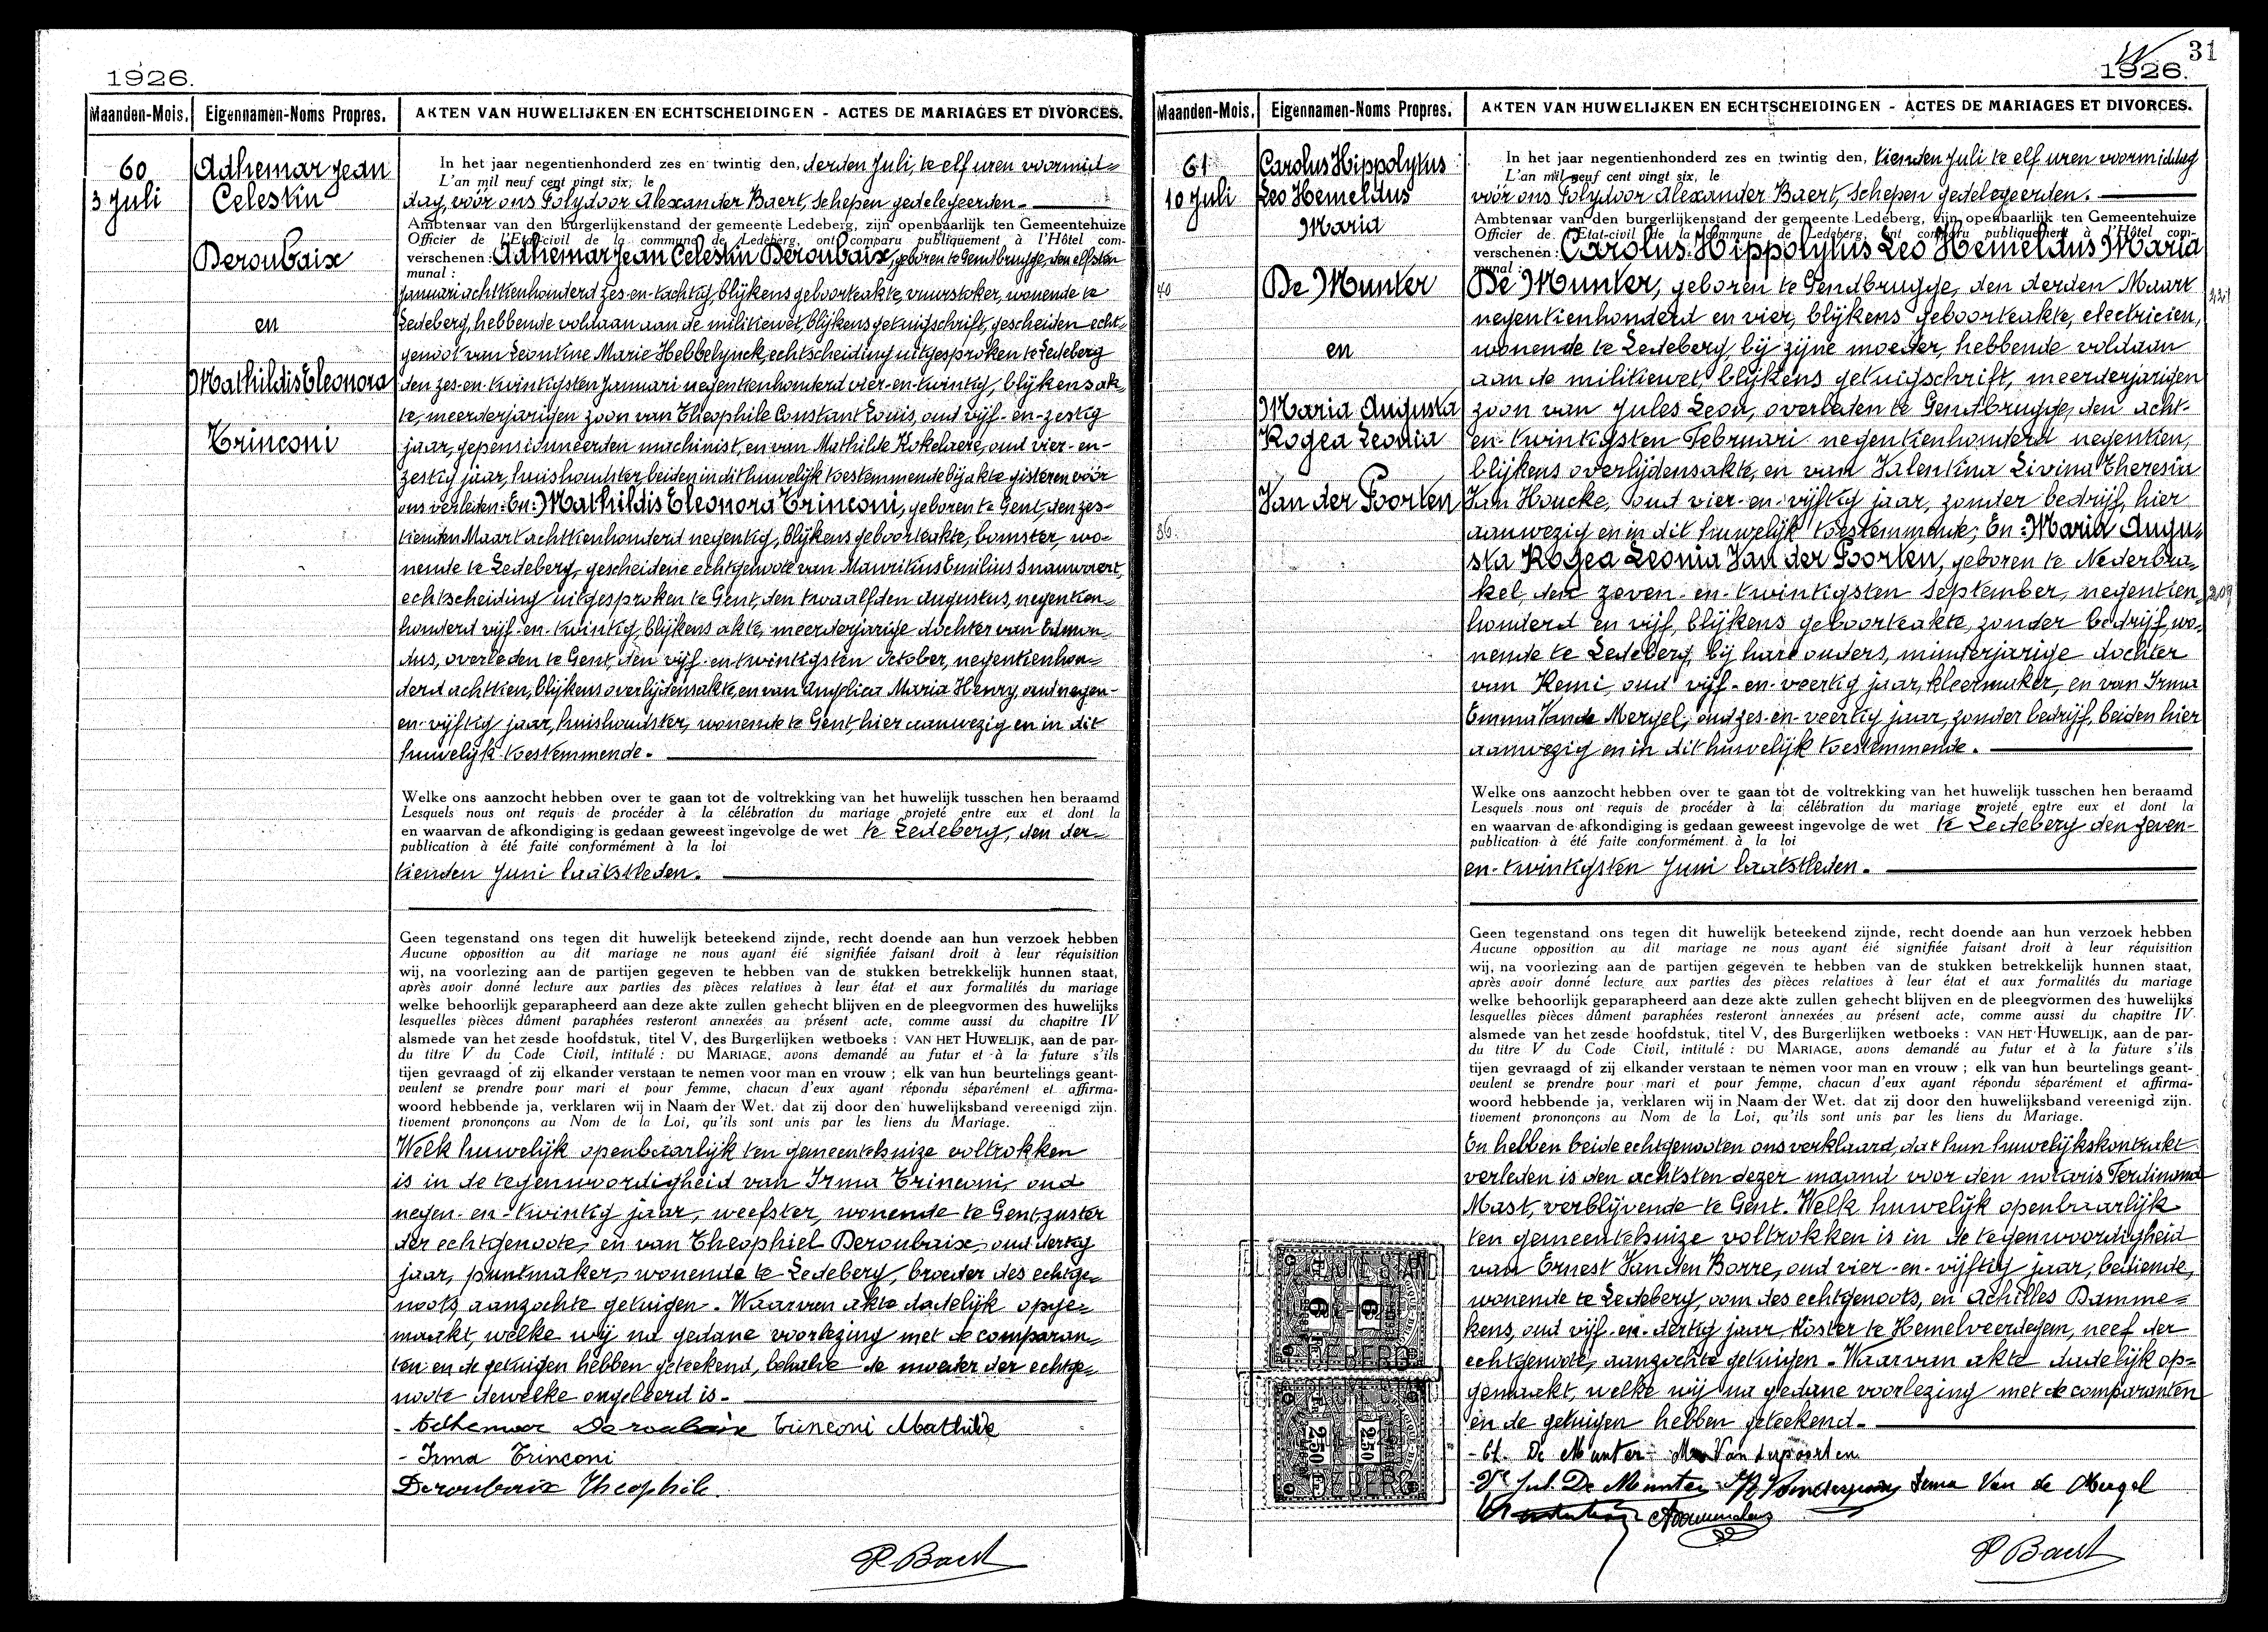 1926.
Maanden-Mois. Eigennamen-Noms Propres. AKTEN VAN HUWELIJKEN EN ECHTSCHEIDINGEN - ACTES DE MARIAGES ET DIVORCES.
60
3 Juli
Adhemar Jean
Celestin
Deroubaix
en
Mathildis Eleonora
Trinconi
In het jaar negentienhonderd zes en twintig den, derden Juli, te elf uren voormid=
L'an mil neuf cent vingt six, le
dag, vóór ons Polydoor Alexander Baert, Schepen gedelegeerden.
Ambtenaar van den burgerlijkenstand der gemeente Ledeberg, zijn openbaarlijk ten Gemeentehuize
Officier de l'Etat-civil de la commune de Ledeberg, ont comparu publiquement à l'Hôtel com-
verschenen: Adhemar Jean Celestin Deroubaix, geboren te Gendbrugge, den elfsten
munal:
Januari achttienhonderd zes-en-tachtig, blijkens geboorteakte, vuurstoker, wonende te
Ledeberg, hebbende voldaan aan de militiewet, blijkens getuigschrift, gescheiden echt-
genoot van Leontine Marie Hebbelynck, echtscheiding uitgesproken te Ledeberg
den zes-en-twintigsten Januari negentienhonderd vier-en-twintig, blijkens ak-
te, meerderjarigen zoon van Theophile Constant Louis, oud vijf-en-zestig
jaar, gepensionneerden machinist, en van Mathilde Kokelaere, oud vier-en-
zestig jaar, huishoudster, beiden in dit huwelijk toestemmende bij akte gisteren vóór
ons verleden: En: Mathildis Eleonora Trinconi, geboren te Gent, den zes-
tienden Maart achttienhonderd negentig, blijkens geboorteakte, bomster, wo-
nende te Ledeberg, gescheidene echtgenoote van Mauritius Emilius Snauwaert,
echtscheiding uitgesproken te Gent, den twaalfden Augustus, negentien-
honderd vijf-en-twintig, blijkens akte, meerderjarige dochter van Edmon-
dus, overleden te Gent, den vijf-en-twintigsten October, negentienhon-
derd achttien, blijkens overlijdensakte, en van Angelica Maria Henry, oud negen-
en-vijftig jaar, huishoudster, wonende te Gent, hier aanwezig en in dit
huwelijk toestemmende.
Welke ons aanzocht hebben over te gaan tot de voltrekking van het huwelijk tusschen hen beraamd
Lesquels nous ont requis de procéder à la célébration du mariage projeté entre eux et dont la
en waarvan de afkondiging is gedaan geweest ingevolge de wet te Ledeberg, den der-
publication à été faite conformément à la loi
tienden Juni laatstleden.
Geen tegenstand ons tegen dit huwelijk beteekend zijnde, recht doende aan hun verzoek hebben
Aucune opposition au dit mariage ne nous ayant éié signifiée faisant droit à leur réquisition
wij, na voorlezing aan de partijen gegeven te hebben van de stukken betrekkelijk hunnen staat,
après avoir donné lecture aux parties des pièces relatives à leur état et aux formalités du mariage
welke behoorlijk geparapheerd aan deze akte zullen gehecht blijven en de pleegvormen des huwelijks
lesquelles pièces dûment paraphées resteront annexées au présent acte, comme aussi du chapitre IV
alsmede van het zesde hoofdstuk, titel V, des Burgerlijken wetboeks : VAN HET HUWELIJK, aan de par-
du titre V du Code Civil, intitulé : DU MARIAGE, avons demandé au futur et à la future s'ils
tijen gevraagd of zij elkander verstaan te nemen voor man en vrouw ; elk van hun beurtelings geant-
veulent se prendre pour mari et pour femme, chacun d'eux ayant répondu séparément et affirma-
woord hebbende ja, verklaren wij in Naam der Wet. dat zij door den huwelijksband vereenigd zijn.
tivement prononçons au Nom de la Loi, qu'ils sont unis par les liens du Mariage.
Welk huwelijk openbaarlijk ten gemeentehuize voltrokken
is in de tegenwoordigheid van Irma Trinconi, oud
negen-en-twintig jaar, weefster, wonende te Gent, zuster
der echtgenoote, en van Theophiel Deroubaix, oud dertig
jaar, puntmaker, wonende te Ledeberg, broeder des echtge-
noots, aanzochte getuigen. Waarvan akte dadelijk opge=
maakt, welke wij na gedane voorlezing met de comparan-
ten en de getuigen hebben geteekend, behalve de moeder der echtge-
noote dewelke ongeleerd is.
- Adhemar Deroubaix Trinconi Mathilde
- Irma Trinconi
Deroubaix Theophile.
P Baert
31
1926.
Maanden-Mois. Eigennamen-Noms Propres. AKTEN VAN HUWELIJKEN EN ECHTSCHEIDINGEN - ACTES DE MARIAGES ET DIVORCES.
61
10 Juli
40
36.
Carolus Hippolytus
Leo Hemeldus
Maria
De Munter
en
Maria Augusta
Rogea Leonia
Van der Poorten
In het jaar negentienhonderd zes en twintig den, tienden Juli te elf uren voormiddag
L'an mil neuf cent vingt six, le
vóór ons Polydoor Alexander Baert, Schepen gedelegeerden.
Ambtenaar van den burgerlijkenstand der gemeente Ledeberg, zijn openbaarlijk ten Gemeentehuize
Officier de l'Etat-civil de la commune de Ledeberg, ont comparu publiquement à l'Hôtel com-
verschenen: Carolus Hippolytus Leo Hemeldus Maria
munal:
De Munter, geboren te Gendbrugge, den derden Maart
negentienhonderd en vier, blijkens geboorteakte, electricien,
wonende te Ledeberg, bij zijne moeder, hebbende voldaan
aan de militiewet, blijkens getuigschrift, meerderjarigen
zoon van Jules Leon, overleden te Gendbrugge, den acht-
en-twintigsten Februari negentienhonderd negentien,
blijkens overlijdensakte, en van Valentina Livina Theresia
Van Houcke, oud vier-en-vijftig jaar, zonder bedrijf, hier
aanwezig en in dit huwelijk toestemmende; En: Maria Augu-
sta Rogea Leonia Van der Poorten, geboren te Nederbra-
kel, den zeven-en-twintigsten September, negentien-
honderd en vijf, blijkens geboorteakte, zonder bedrijf, wo-
nende te Ledeberg, bij hare ouders, minderjarige dochter
van Remi, oud vijf-en-veertig jaar, kleermaker, en van Irma
Emma Van de Mergel, oud zes-en-veertig jaar, zonder bedrijf, beiden hier
aanwezig en in dit huwelijk toestemmende.
Welke ons aanzocht hebben over te gaan tot de voltrekking van het huwelijk tusschen hen beraamd
Lesquels nous ont requis de procéder à la célébration du mariage projeté entre eux et dont la
en waarvan de afkondiging is gedaan geweest ingevolge de wet te Ledeberg den zeven-
publication à été faite conformément à la loi
en-twintigsten Juni laatstleden.
Geen tegenstand ons tegen dit huwelijk beteekend zijnde, recht doende aan hun verzoek hebben
Aucune opposition au dit mariage ne nous ayant éié signifiée faisant droit à leur réquisition
wij, na voorlezing aan de partijen gegeven te hebben van de stukken betrekkelijk hunnen staat,
après avoir donné lecture aux parties des pièces relatives à leur état et aux formalités du mariage
welke behoorlijk geparapheerd aan deze akte zullen gehecht blijven en de pleegvormen des huwelijks
lesquelles pièces dûment paraphées resteront annexées au présent acte, comme aussi du chapitre IV
alsmede van het zesde hoofdstuk, titel V, des Burgerlijken wetboeks : VAN HET HUWELIJK, aan de par-
du titre V du Code Civil, intitulé : DU MARIAGE, avons demandé au futur et à la future s'ils
tijen gevraagd of zij elkander verstaan te nemen voor man en vrouw ; elk van hun beurtelings geant-
veulent se prendre pour mari et pour femme, chacun d'eux ayant répondu séparément et affirma-
woord hebbende ja, verklaren wij in Naam der Wet. dat zij door den huwelijksband vereenigd zijn.
tivement prononçons au Nom de la Loi, qu'ils sont unis par les liens du Mariage.
En hebben beide echtgenooten ons verklaard, dat hun huwelijkskontrakt
verleden is den achtsten dezer maand voor den notaris Ferdinand
Mast, verblijvende te Gent. Welk huwelijk openbaarlijk
ten gemeentehuize voltrokken is in de tegenwoordigheid
van Ernest Van den Borre, oud vier-en-vijftig jaar, bediende,
wonende te Ledeberg, oom des echtgenoots, en Achilles Damme=
kens, oud vijf-en-dertig jaar Koster te Hemelveerdegem, neef der
echtgenoote, aanzochte getuigen. Waarvan akte dadelijk op=
gemaakt, welke wij na gedane voorlezing met de comparanten
en de getuigen hebben geteekend.
De Munter M Van derpoorten
Jul. De Munter Irma Van de Mergel
P Baert
250 250